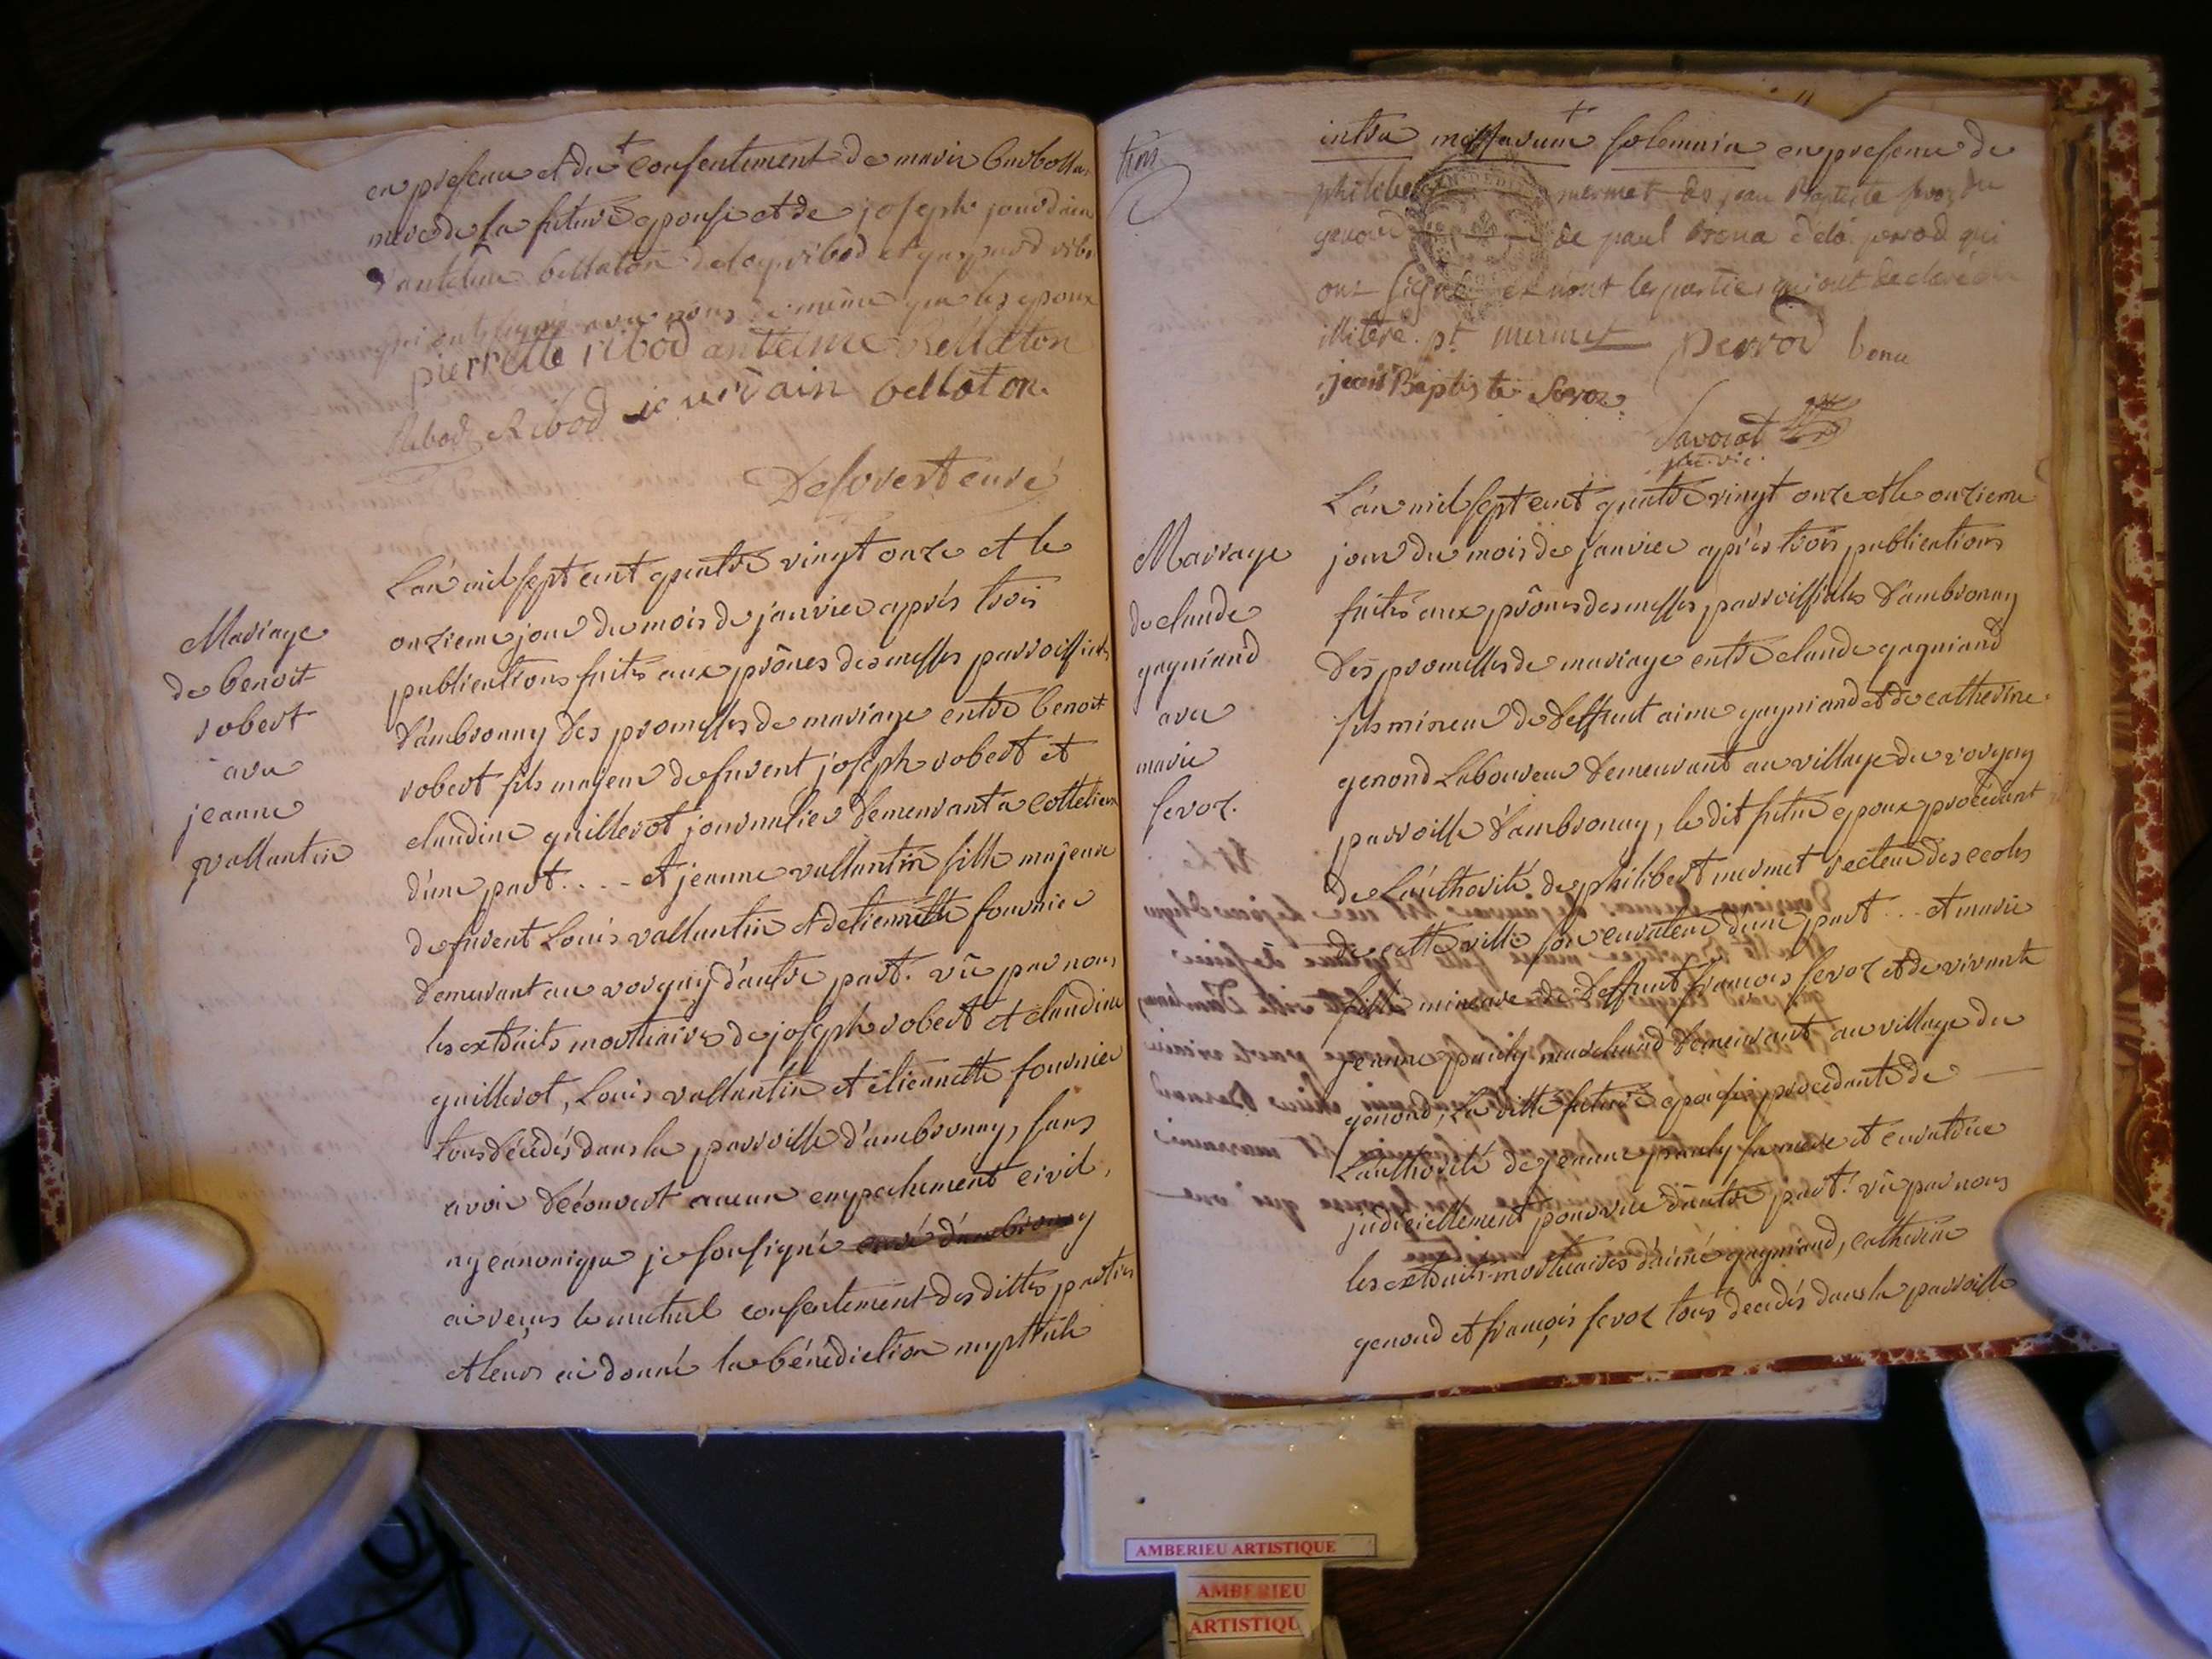 en presence et du consentement de marie
mere de la future epouse et de joseph jourdain
d'antelme bellaton de loy ribod et gaspard ribo
qui ont signé avec nous de même que les epoux
pierrette ribod antelme Bellaton
Ribod Ribod jourdain bellaton
Deforest curé
Mariage
de benoit
robert
avec
jeanne
vallantin
L'an mil sept cent quatre vingt onze et le
onzieme jour du mois de janvier aprés trois
publications faites aux prônes des messes parroissiales
d'ambronay des promesses de mariage entre benoit
robert fils majeur de furent joseph robert et
claudine guillerot journalier demeurant a cottelieu
d'une part.... et jeanne vallantin fille majeure
de furent Louis vallantin et detiennette fournier
demeurant au vorgey d'autre part. vû par nous
les extraits mortuaires de joseph robert et claudine
guillerot, Louis vallantin et etiennette fournier
tous décédés dans la parroisse d'ambronay, sans
avoir découvert aucun empechement civil,
ny canonique je soussigné curé d'ambronay
ai reçus le mutuel consentement des dittes parties
et leurs ai donné la bénédiction nuptiale
intra missarum solemnia en presence de
philibert mermet de jean Baptiste fevoz du
genoud de paul bona deloi perrod qui
ont signé et non les parties qui ont declaré
illitéré. pt mermet perrod bona
jean Baptiste fevoz
Savorat
ptre. vic.
Mariage
de claude
gagniand
avec
marie
fevoz.
L'an mil sept cent quatre vingt onze et le onzieme
jour du mois de janvier aprés trois publications
faites aux prônes des messes parroissiales d'ambronay
des promesses de mariage entre claude gagniand
fils mineur de deffunt aimé gagniand et de catherine
genoud Laboureur demeurant au village du vorgey
parroisse d'ambronay, le dit futur epoux procédant
de L'authorité de philibert mermet recteur des ecoles
de cette ville son curateur d'une part... et marie
fille mineure de deffunt françois fevoz et de vivante
jeanne pauly marchand demeurant au village du
genoud, La ditte future epouse procedante de
L'authorité de jeanne pauly sa mere et curatrice
judiciellement pourvue d'autre part. vû par nous
les extraits mortuaires d'aimé gagniand, catherine
genoud et françois fevoz tous decedés dans la parroisse
AMBERIEU ARTISTIQUE
AMBERIEU
ARTISTIQU